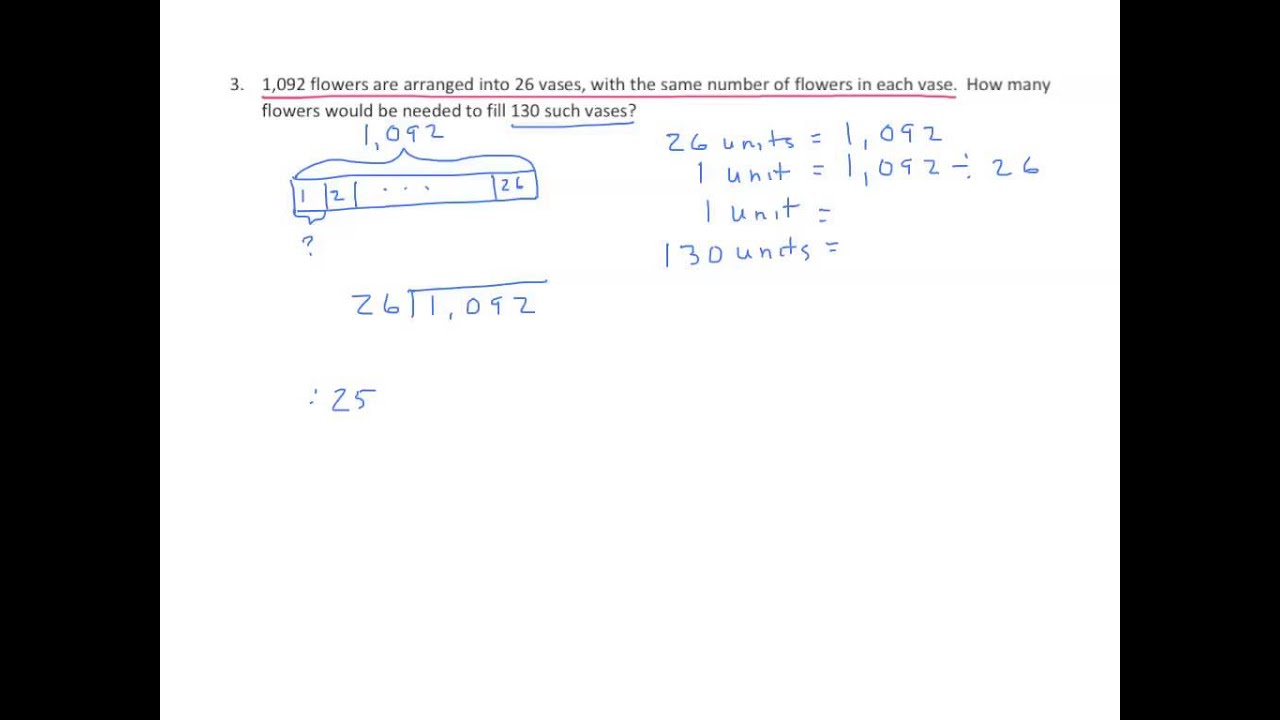 3. 1,092 flowers are arranged into 26 vases, with the same number of flowers in each vase. How many
flowers would be needed to fill 130 such vases?
1,092
1 2 . . . 26
?
26 units = 1,092
1 unit = 1,092 ÷ 26
1 unit =
130 units =
26 1,092
: 25